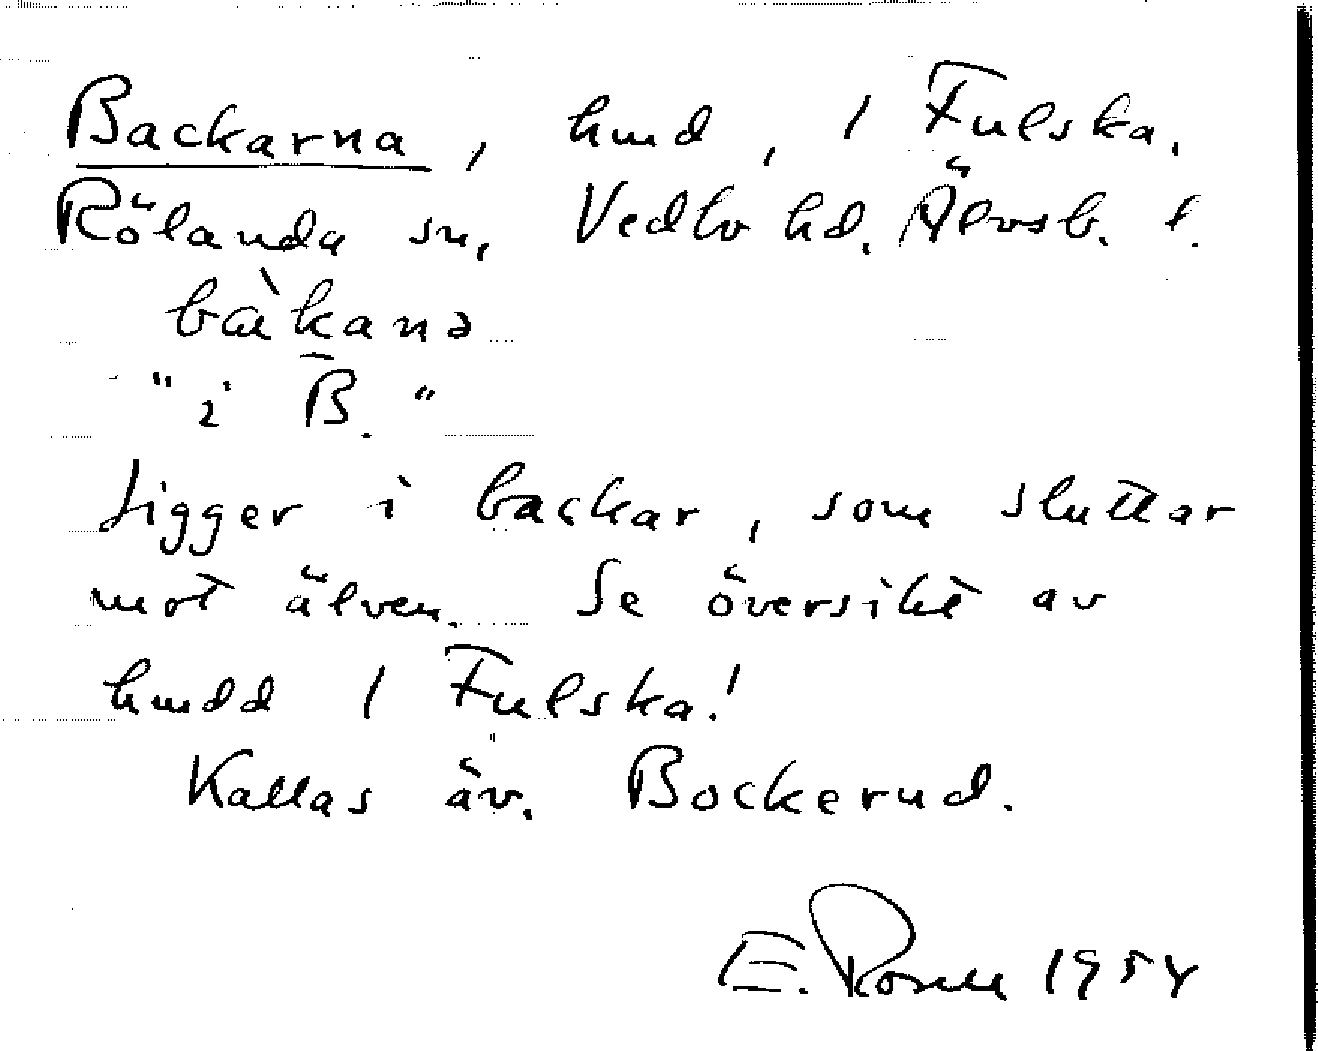 Backarna, hmd, 1 Fulska.
Rölanda sn, Vedbo hd. Älvsb. l.
bàkanə
"i B."
Ligger i backar, som sluttar
mot älven. Se översikt av
hmdd 1 Fulska!
Kallas äv. Bockerud.
E. Rosell 1954